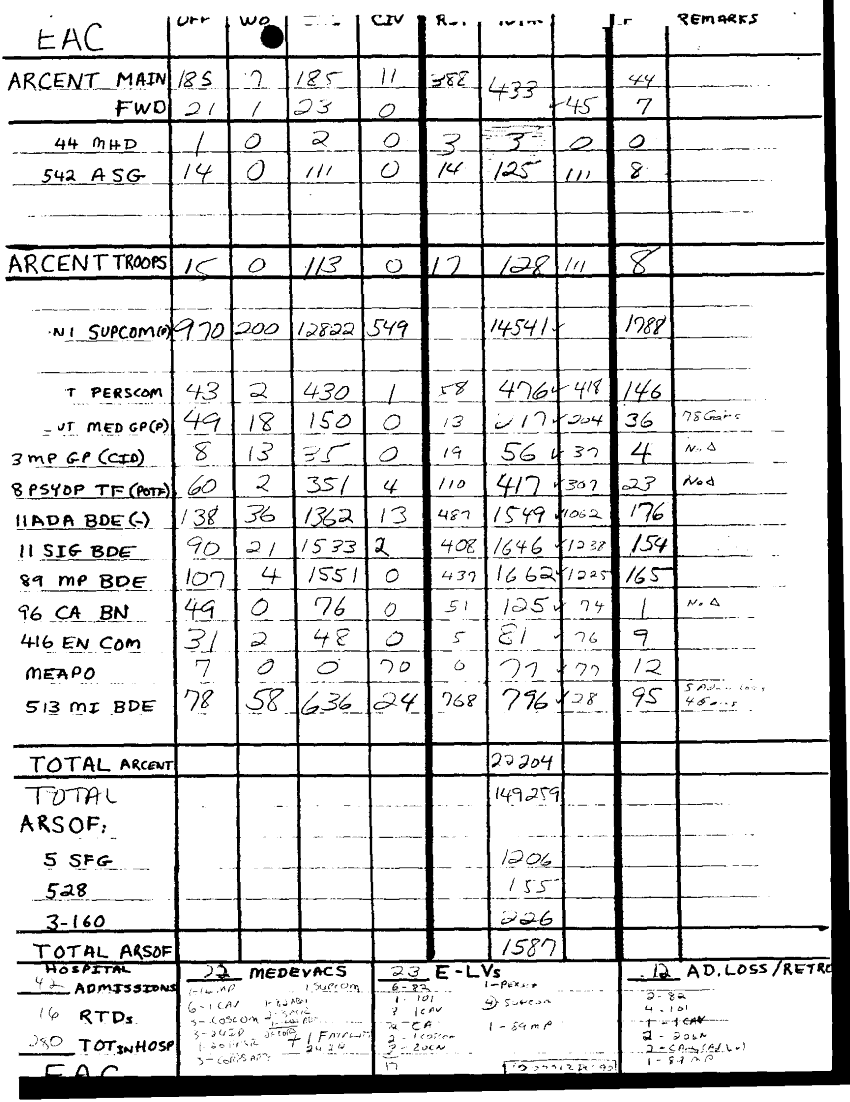 EAC WO CIV REMARKS
ARCENT MAIN 185 7 185 11 388 433 44
FWD 21 1 23 0 45 7
44 MHD 1 0 2 0 3 3 0 0
542 ASG 14 0 111 0 14 125 111 8
ARCENT TROOPS 15 0 113 0 17 128 111 8
SUPCOM(P) 970 200 12822 549 14541 ✓ 1788
T PERSCOM 43 2 430 1 58 476 ✓ 418 146
MED GP(P) 49 18 150 0 13 217 ✓ 204 36
3 MP GP (CID) 8 13 35 0 19 56 ✓ 37 4 No Δ
8 PSYOP TF (POTF) 60 2 351 4 110 417 ✓ 307 23 No Δ
11 ADA BDE (-) 138 36 1362 13 487 1549 ✓ 1062 176
11 SIG BDE 90 21 1533 2 408 1646 ✓ 1238 154
89 MP BDE 107 4 1551 0 437 1662 ✓ 1225 165
96 CA BN 49 0 76 0 51 125 ✓ 74 1 No Δ
416 EN COM 31 2 48 0 5 81 ✓ 76 9
MEAPO 7 0 0 70 0 77 ✓ 77 12
513 MI BDE 78 58 636 24 768 796 ✓ 28 95
TOTAL ARCENT 22204
TOTAL 149259
ARSOF:
5 SFG 1206
528 155
3-160 226
TOTAL ARSOF 1587
HOSPITAL 22 MEDEVACS 23 E-LVs 12 AD.LOSS/RETRO
42 ADMISSIONS 1 SUPCOM 6-82 2-82
1-101 4-101
16 RTDs 6-1CAV 3 1CAV 1-1CAV
5-COSCOM 2-CA 1-89MP
280 TOT IN HOSP 3-24ID 1-89 MP
17
EAC